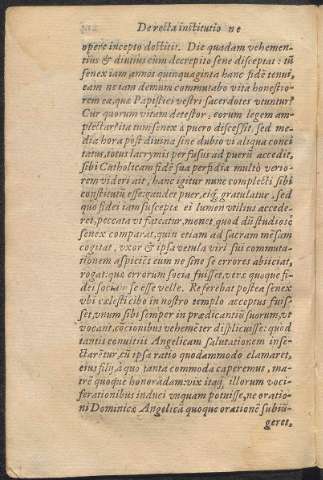 De recta institutio ne
opere incepto destitit. Die quadam vehemen-
tius & diutius cum decrepito sene disceptat: tũ
senex iam, annos quinquaginta hanc fidẽ tenui,
eam ne iam demum commutabo vita honestio-
rem ea, qua Papistici vestri sacerdotes vtuntur?
Cur quorum vitam detestor, eorum legem am-
plectar? ita tum senex à puero discessit, sed me-
dia hora pòst diuina sine dubio vi aliqua conci
tatus, totus lacrymis perfusus ad puerũ accedit,
sibi Catholicam fidẽ sua perfidia multò verio-
rem videri ait, hanc igitur nunc complecti sibi
constitutũ esse: gaudet puer, eiq́; gratulatur. Sed
quo fidei iam susceptæ ei lumen vtilius accede-
ret, peccata vt fateatur, monet quod dũ studiosè
senex comparat, quin etiam ad sacram mẽsam
cogitat, vxor & ipsa vetula viri sui commuta-
tionem aspiciẽs eum ne sino se errores abiiciat,
rogat: quæ errorum socia fuisset, veræ quoque fi-
dei sociam se esse velle. Referebat postea senex
vbi cælesti cibo in nostro templo acceptus fuis-
set, vnum sibi semper in prædicantiũ suorum, vt
vocant, cõcionibus vehemẽter displicuisse: quòd
tantis conuitiis Angelicam salutationem inse-
ctarẽtur, cũ ipsa ratio quodammodo clamaret,
eius filij, à quo tanta commoda caperemus, ma-
trẽ quoque honorãdam: vix itaq́; illorum voci-
ferationibus induci vnquam potuisse, ne oratio-
ni Dominicæ Angelicã quoque orationẽ subiũ-
geret.